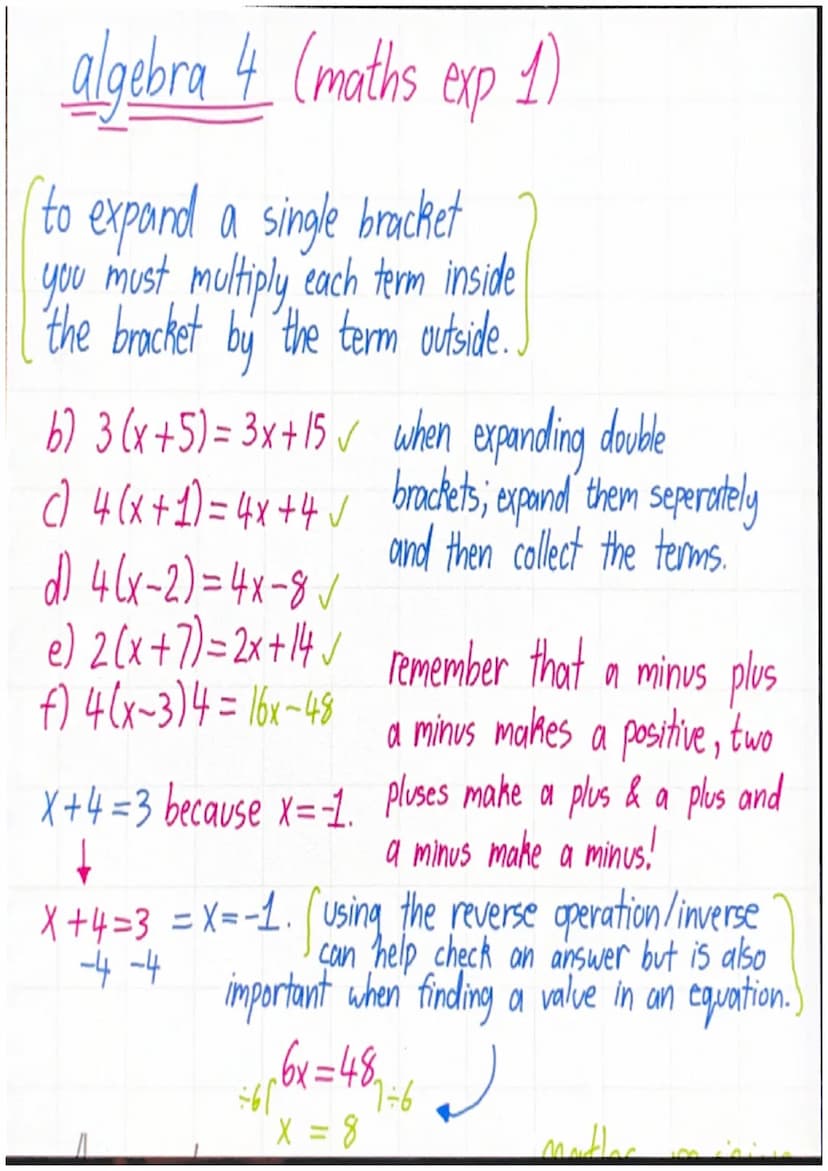 algebra 4 (maths exp 1)
to expand a single bracket
you must multiply each term inside
the bracket by the term outside.
b) 3(x+5)=3x+15 ✓
c) 4(x+1)=4x+4 ✓
d) 4(x-2)=4x-8 ✓
e) 2(x+7)=2x+14 ✓
f) 4(x-3)4= 16x-48
when expanding double
brackets; expand them seperately
and then collect the terms.
remember that a minus plus
a minus makes a positive, two
pluses make a plus & a plus and
a minus make a minus!
x+4=3 because x=-1.
↓
x+4=3 = x=-1.
-4 -4
using the reverse operation/inverse
can help check an answer but is also
important when finding a value in an equation.
6x=48
÷6 ÷6
x = 8